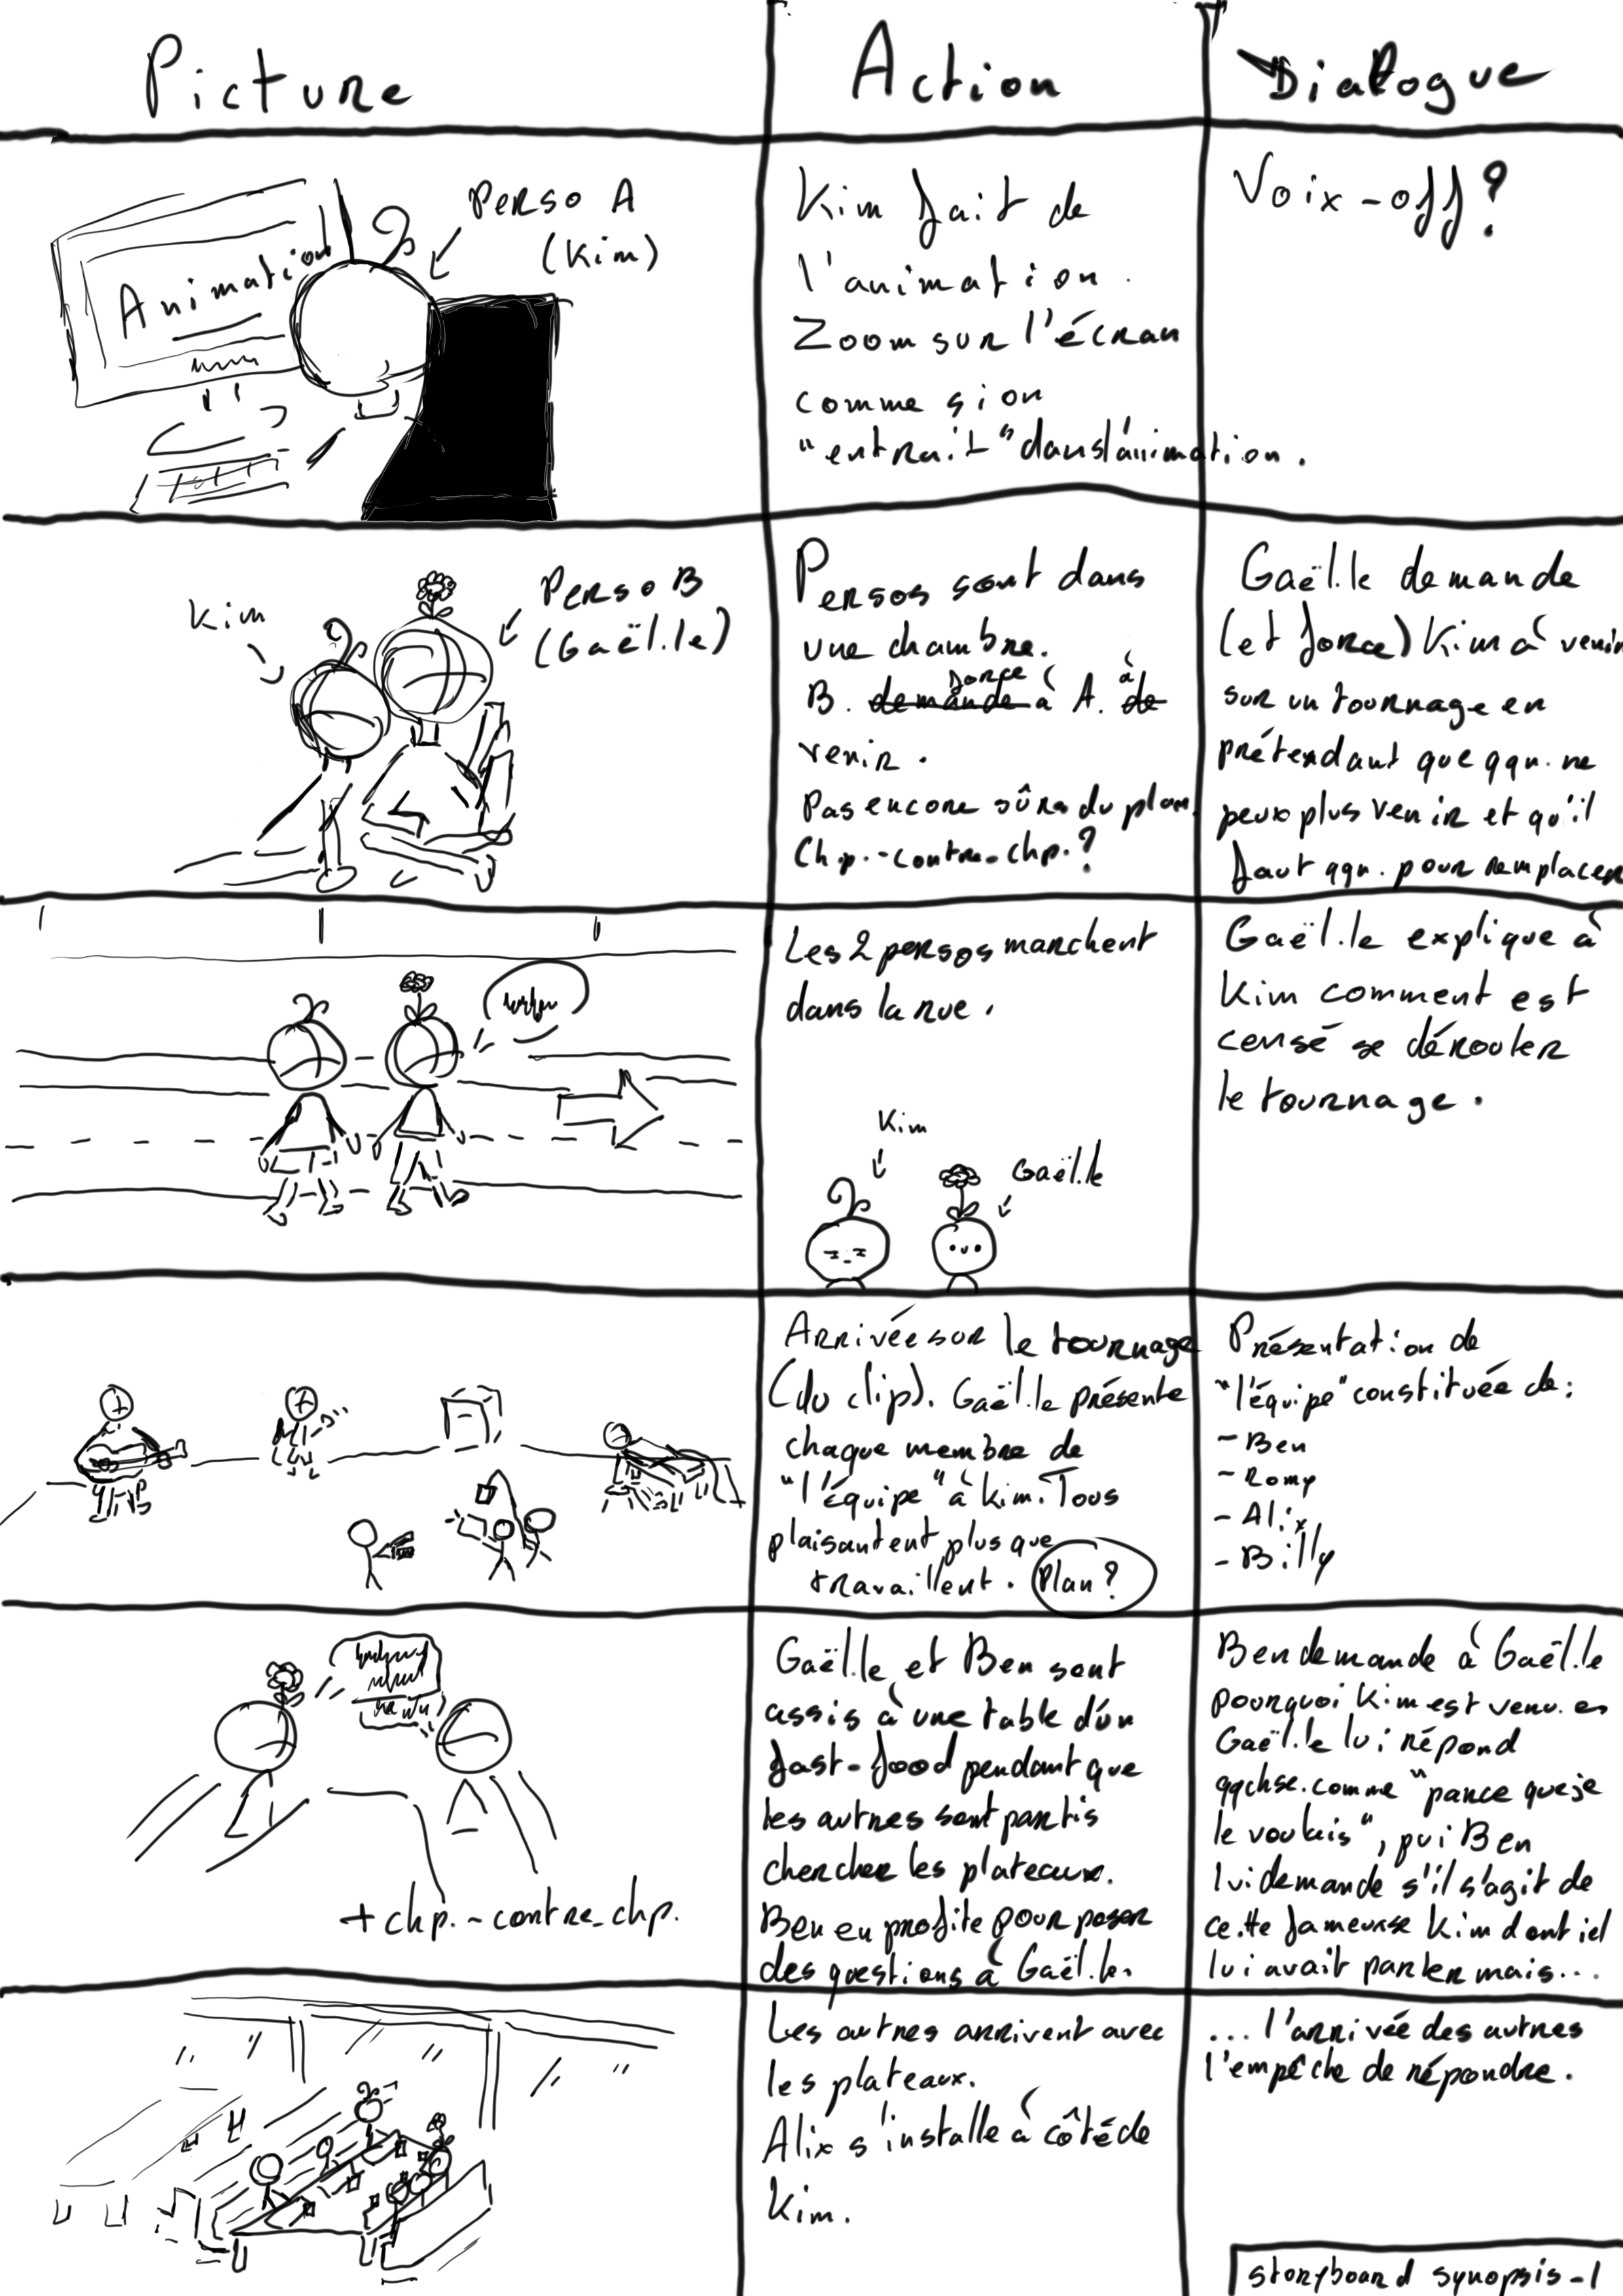 Picture
Action
Dialogue
Animation
Perso A
(Kim)
Kim fait de
l'animation.
Zoom sur l'écran
comme si on
"entrait" dans l'animation.
Voix-off?
Kim
Perso B
(Gaël.le)
Persos sont dans
une chambre.
force à
B. demande à A. de
venir.
Pas encore sûre du plan.
Chp.-contre-chp.?
Gaël.le demande
(et force) Kim à venir
sur un tournage en
prétendant que qqn. ne
peux plus venir et qu'il
faut qqn. pour remplacer
Les 2 persos marchent
dans la rue.
Kim
Gaël.le
Gaël.le explique à
Kim comment est
censé se dérouler
le tournage.
Arrivée sur le tournage
(du clip). Gaël.le présente
chaque membre de
"l'équipe" à Kim. Tous
plaisantent plus que
travaillent. Plan?
Présentation de
"l'équipe" constituée de:
- Ben
- Romy
- Alix
- Billy
+ chp.-contre-chp.
Gaël.le et Ben sont
assis à une table d'un
fast-food pendant que
les autres sont partis
chercher les plateaux.
Ben en profite pour poser
des questions à Gaël.le.
Ben demande à Gaël.le
pourquoi Kim est venu.e
Gaël.le lui répond
qqchse. comme "parce que je
le voulais", pui Ben
lui demande s'il s'agit de
ce.tte fameuse Kim dont iel
lui avait parler mais...
Les autres arrivent avec
les plateaux.
Alix s'installe à côté de
Kim.
... l'arrivée des autres
l'empêche de répondre.
storyboard synopsis-1